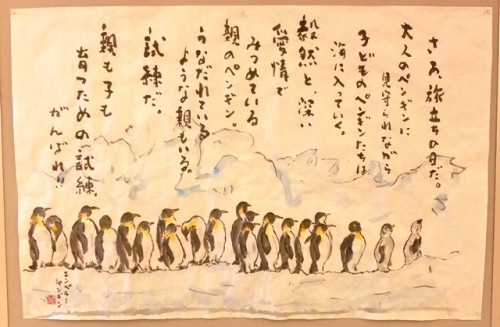 さあ、旅立ちの日だ。
大人のペンギンに
見守られながら
子どものペンギンたちは
海に入っていく。
毅然と、深い
愛情で
みつめている
親のペンギン。
うなだれている
ような親もいる。
試練だ。
親も子も
育つための試練
がんばれ!!
エンペラー
ペンギン